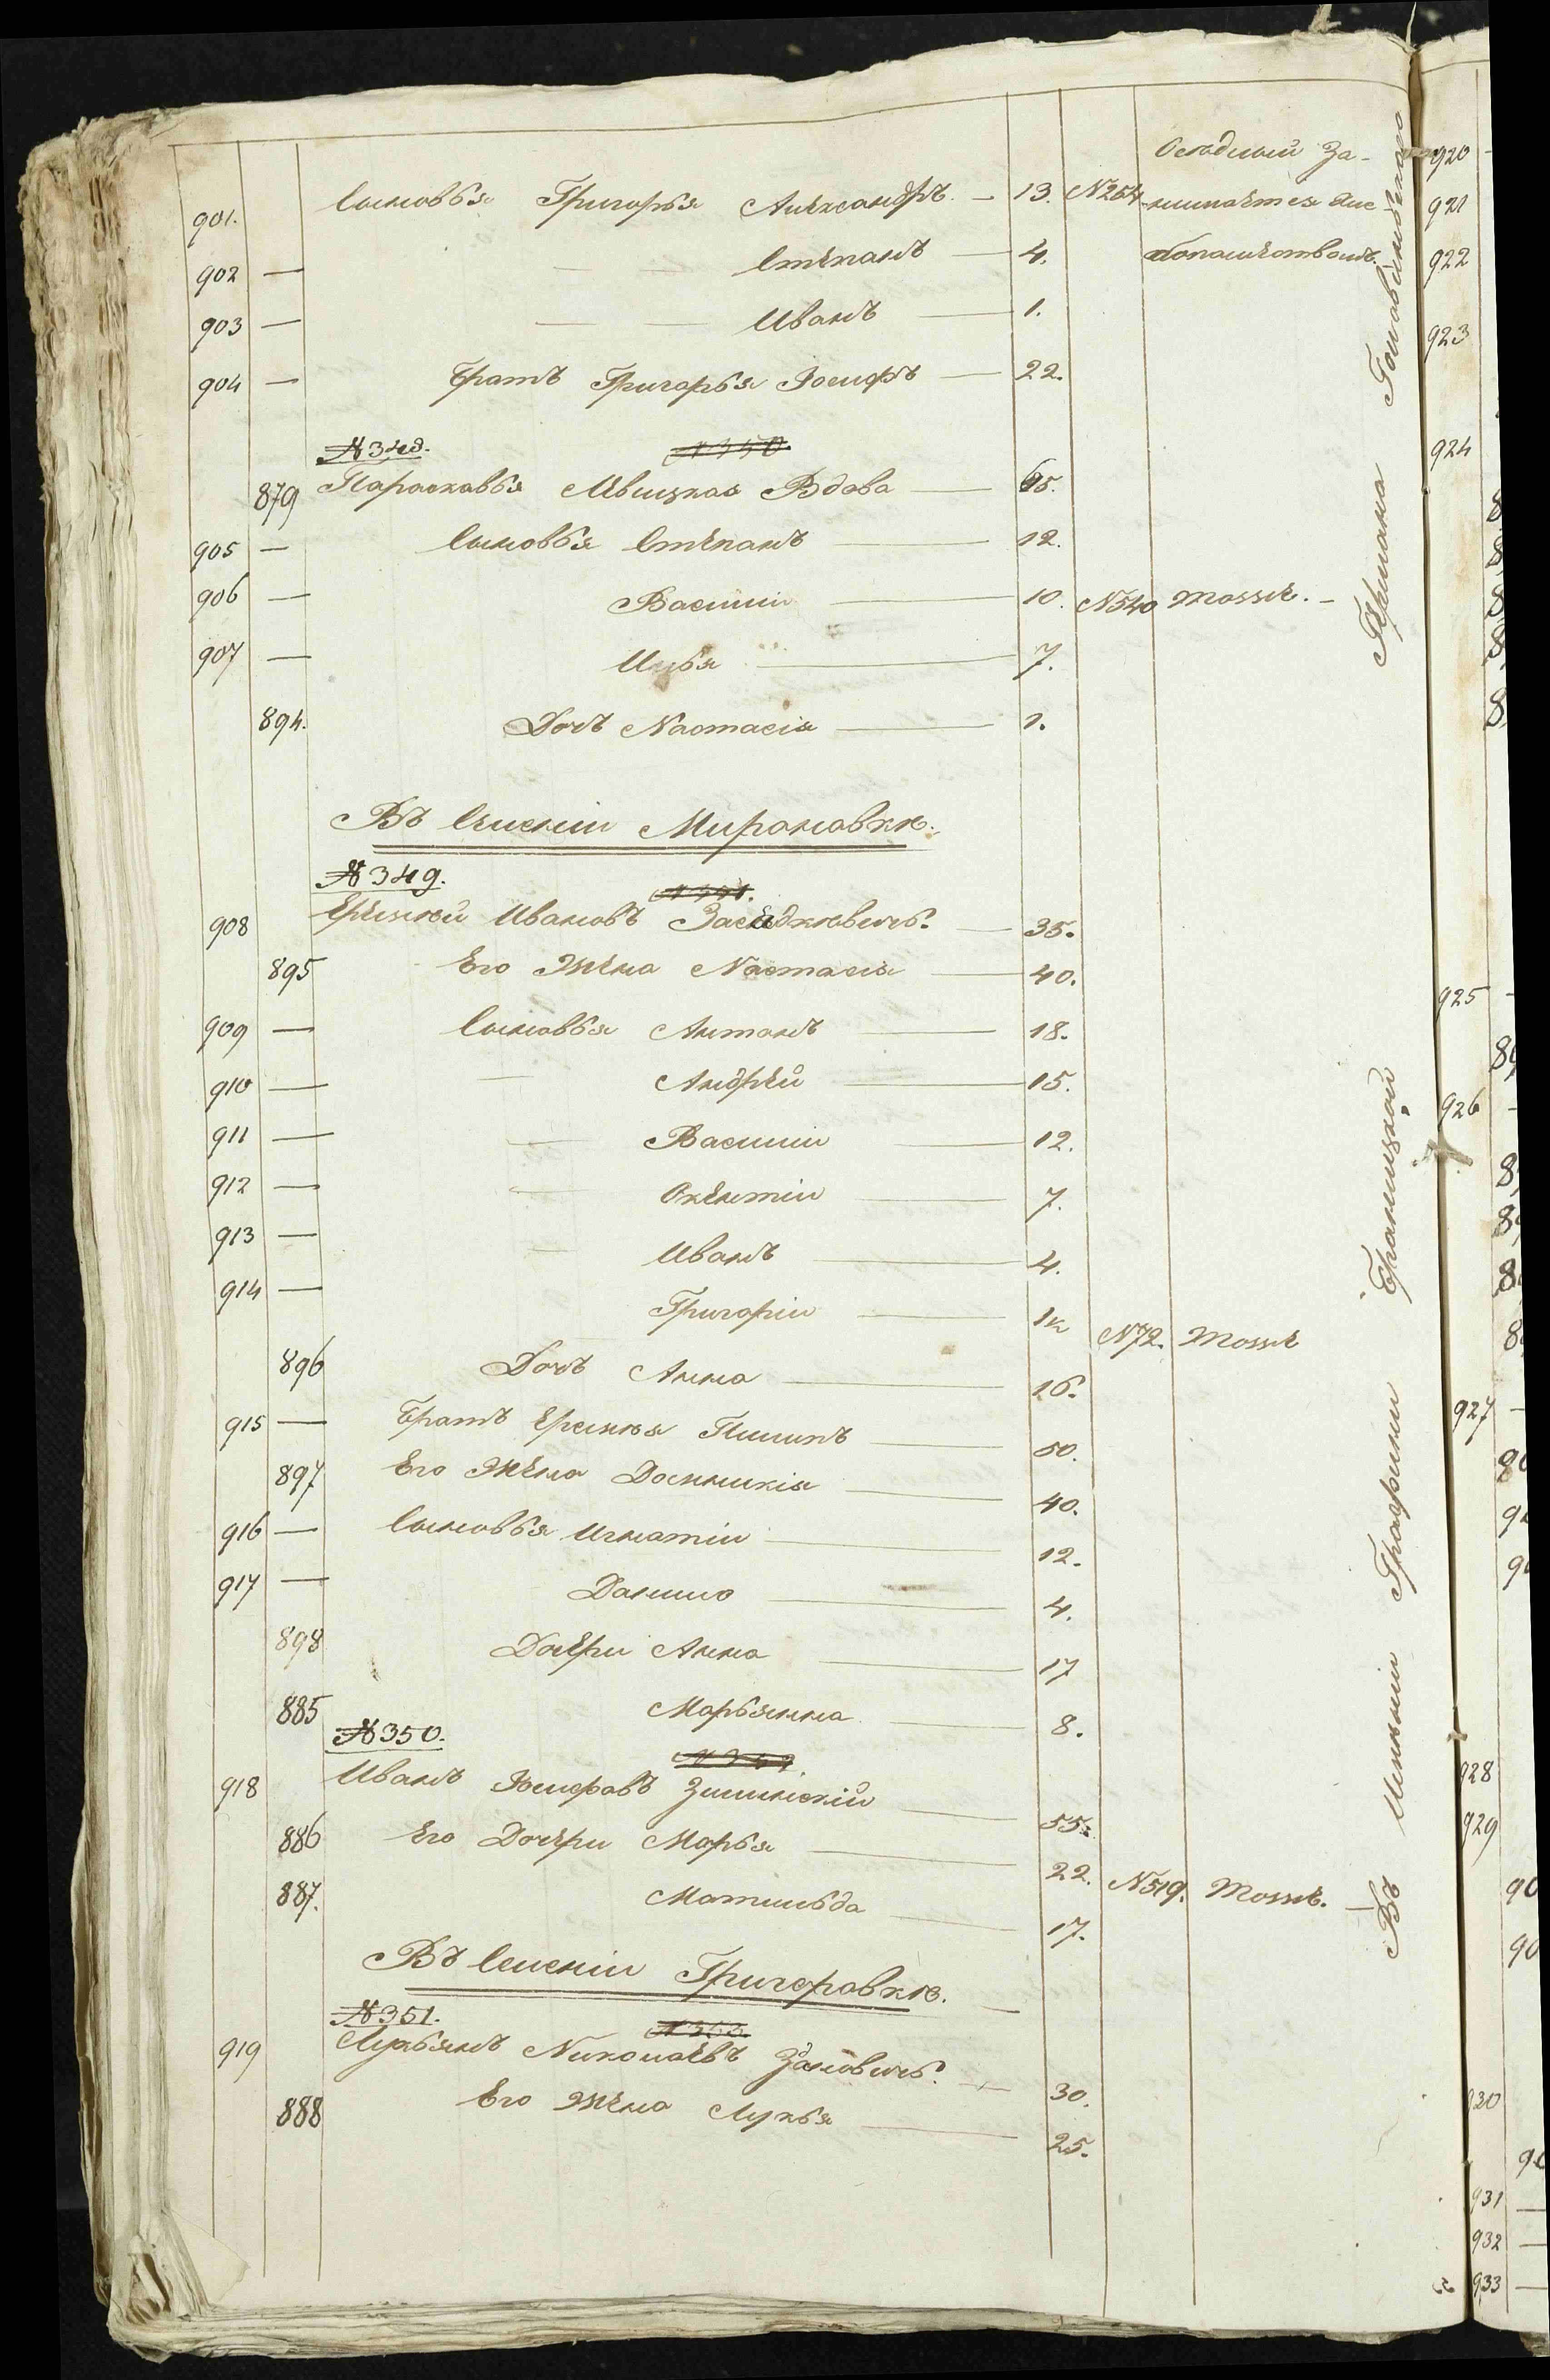 Оседлый За-
901. Сыновья Григорья Александръ. — 13. №254 нимается хле-
902 — Степанъ — 4. бопашествомъ.
903 — Иванъ — 1.
904 — Братъ Григорья Іосифъ — 22.
№348. №350
879 Параскавья Вдова — 65.
905 — Сыновья Степанъ — 12.
906 — Василій — 10. №540 Тоже. —
907 — Илья — 7.
894. Дочь Настасія — 1.
Въ Селеніи Мироновкѣ.
№349.
908 Еремѣй Ивановъ — 35.
895 Его Жена Настасія — 40.
909 — Сыновья Антонъ — 18.
910 — Андрей — 15.
911 — Василій — 12.
912 — 7.
913 — Иванъ — 4.
914 — Григорій — №72. Тоже
896 Дочь Анна — 16.
915 — Братъ Еремѣя Пилипъ — 50.
897 Его Жена Доминикія — 40.
916 — Сыновья Игнатій — 12.
917 — Данило — 4.
898 Дочери Анна — 17
885 Марьянна — 8.
№350.
918 Иванъ Іосифовъ Зилинскій — 55.
886 Его Дочери Марья — 22. №519. Тоже. —
887. Матильда — 17.
Въ Селеніи Григоровкѣ. —
№351.
919 Лукьянъ Николаевъ Зановичъ. — 30.
888 Его Жена Лукья — 25.
Въ Имѣніи Графини Браницкой
920
921
922
923
924
925
926
927
928
929
930
931
932
933